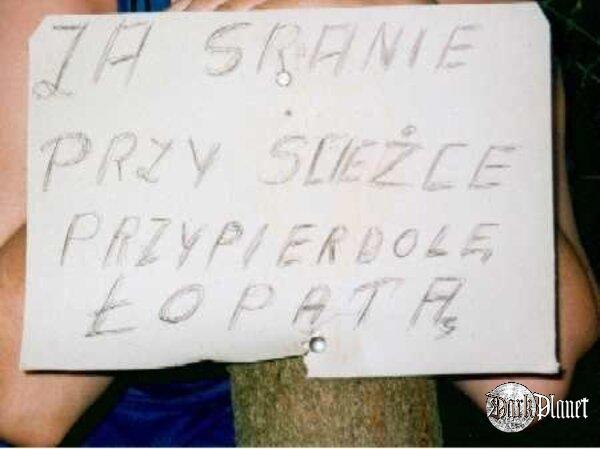 ZA SRANIE
PRZY SCIEŻCE
PRZYPIERDOLĘ
ŁOPATĄ
DarkPlanet